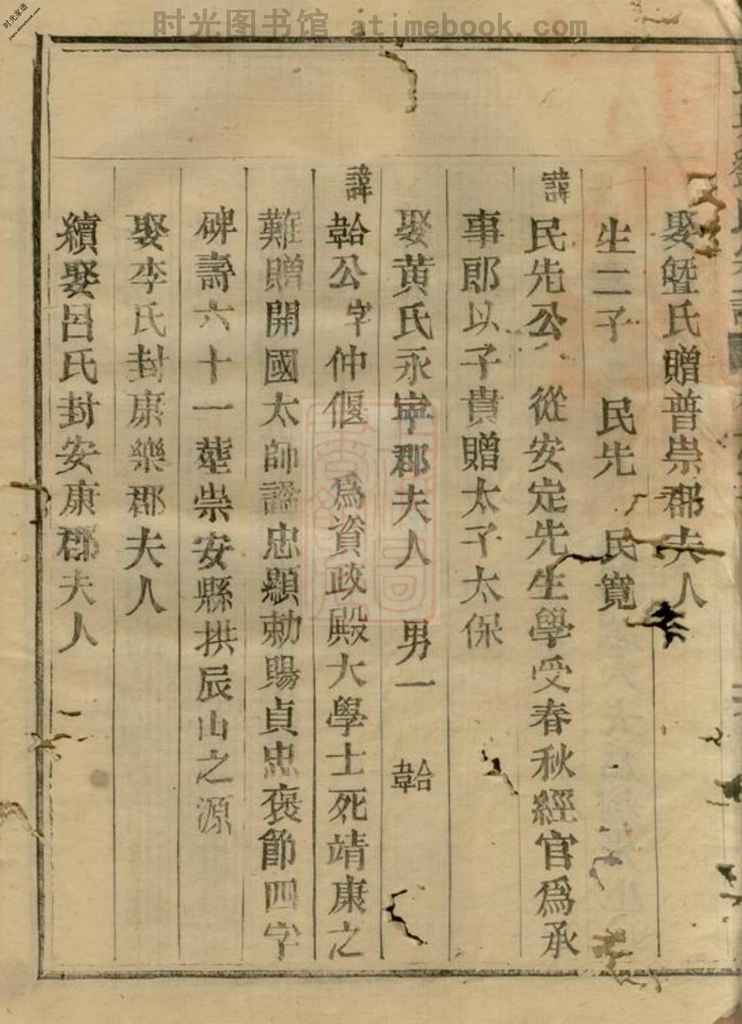 时光图书馆 atimebook.com
时光家谱
娶曁氏贈普崇郡夫人
生二子 民先 民寬
諱民先公 從安定先生學受春秋經官爲承
事郎以子貴贈太子太保
娶黃氏永寧郡夫人 男一 韐
諱韐公字仲偃 爲資政殿大學士死靖康之
難贈開國太師諡忠顯勅賜貞忠褒節四字
碑壽六十一塟崇安縣拱辰山之源
娶李氏封康樂郡夫人
續娶呂氏封安康郡夫人